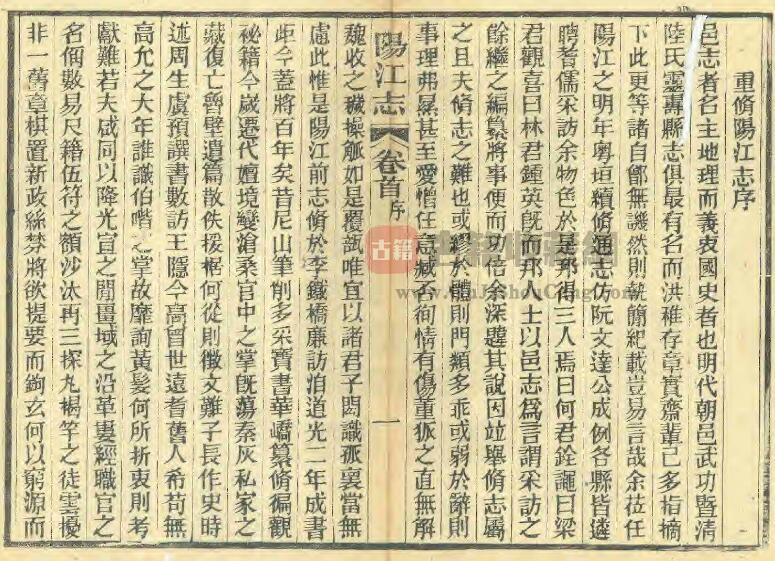 重脩陽江志序
邑志者名主地理而義衷國史者也明代朝邑武功暨清
陸氏靈壽縣志俱最有名而洪稚存章實齋輩已多指摘
下此更等諸自鄶無譏然則執簡紀載豈易言哉余莅任
陽江之明年粵垣續脩通志仿阮文達公成例各縣皆遴
聘耆儒采訪余物色於是邦得三人焉曰何君銓譝曰梁
君觀喜曰林君鍾英旣而邦人士以邑志爲言謂采訪之
餘繼之編纂將事便而功倍余深韙其說因竝舉脩志屬
之且夫脩志之難也或繆於體則門類多乖或弱於辭則
事理弗㬎甚至愛憎任意臧否徇情有傷董狐之直無解
陽江志 卷首 序 一
魏收之穢操觚如是覆瓿唯宜以諸君子閎識孤裹當無
慮此惟是陽江前志脩於李鐵橋廉訪洎道光二年成書
距今蓋將百年矣昔尼山筆削多采寶書華嶠纂脩徧觀
祕籍今歲遷代嬗境變滄桑官中之掌旣蕩秦灰私家之
藏復亡魯壁遺篇散佚援据何從則徵文難子長作史時
述周生虞預譔書數訪王隱今高曾世遠耆舊人希苟無
高允之大年誰識伯喈之掌故靡詢黃髮何所折衷則考
獻難若夫咸同以降光宣之閒畺域之沿革婁經職官之
名偁數易尺籍伍符之額沙汰再三探丸楬竿之徒雲擾
非一舊章棋置新政絲棼將欲提要而鉤玄何以窮源而
古籍
www.GuJiShouCang.com